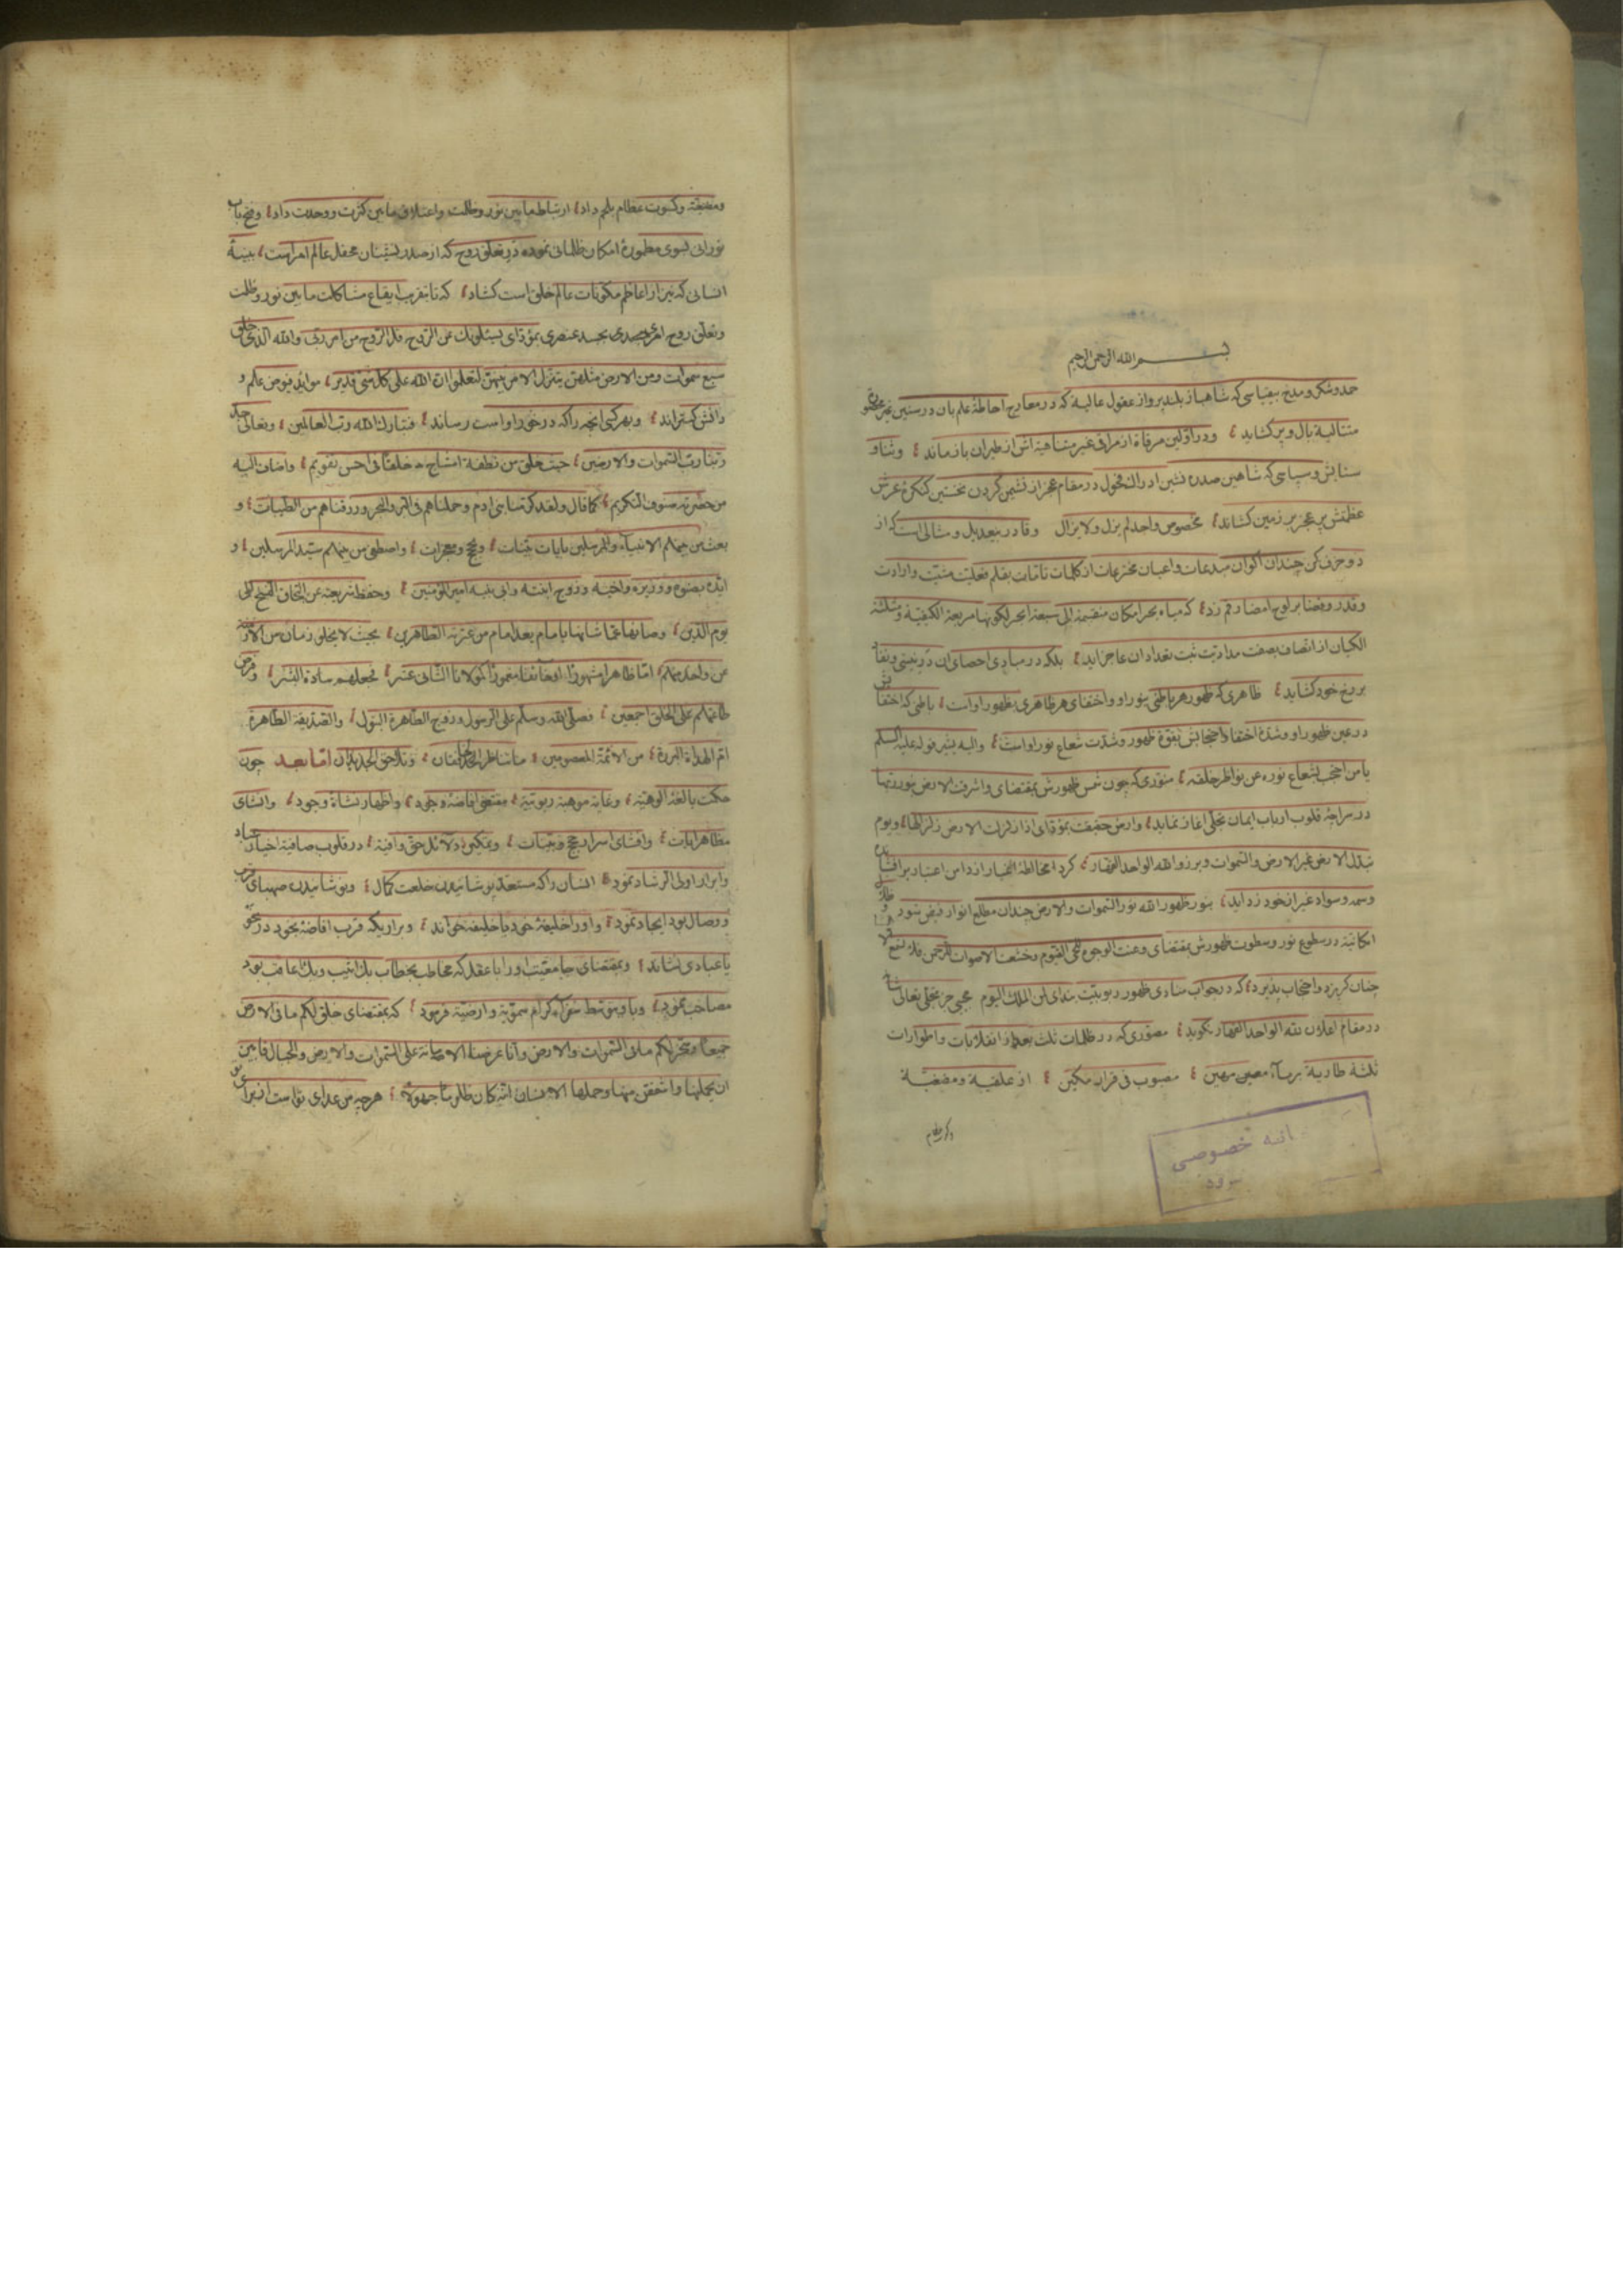 بسم الله الرحمن الرحیم
حمد و شکر و مدح بیقیاسی که شاهباز بلند پرواز عقول عالیه که در معارج احاطهٔ علم بان در سنین غیر
متتالیه بال و پر کشاید و در اولین مرقاة از مراقی غیر متناهیة اش از طیران باز ماند و ثنا و
ستایش و سپاسی که شاهین صدره نشین ادراک فحول در مقام عجز از نشیمن کردن نخستین کنکرهٔ عرش
عظمتش پر عجز بر زمین کشاند مخصوص واحد لم یزل ولا یزال و قادر بیعدیل و مثالی است که از
دو حرف کن چندان اکوان مبدعات و اعیان مخترعات از کلمات تامات بقلم فعلیت مشیت و ارادت
و قدر و قضا بر لوح امضا رقم زد که میاه بحر امکان منقسمة الی سبعة ابحر لکونها مربعة الکیفیة و مثلثة
الکیان از اتصاف بصفت مدادیت ثبت تعداد ان عاجز اید بلکه در مبادی احصای ان در نیستی و نفاد
بر رخ خود کشاید ظاهری که ظهور هر باطنی بنور او و اختفای هر ظاهری بظهور او است باطنی که اختفا
در عین ظهور او و شدة اختفا و احتجابش بقوة ظهور و شدت شعاع نور او است و الیه یشیر قوله علیه السلم
یا من احتجب بشعاع نوره عن نواظر خلقه منوری که چون شمس ظهورش بمقتضای و اشرقت الارض بنور ربها
در مراجهٔ قلوب ارباب ایمان تجلی اغاز نماید و ارض حقیقت بمؤدای اذا زلزلت الارض زلزالها و یوم
تبدل الارض غیر الارض و السموات و برزوا لله الواحد القهار کرد مخالطهٔ اغیار از دامن اعتبار بر افشاند
وسمه و سواد غیر از خود زداید بنور ظهور الله نور السموات والارض چندان مطلع انوار فیض شود
امکانیة در سطوع نور و سطوت ظهورش بمقتضای و عنت الوجوه للحی القیوم و خشعت الاصوات للرحمن فلا تسمع
چنان کریزد و احتجاب پذیرد که در جواب منادی ظهور ربوبیت بندای لمن الملک الیوم مجیبی جز تجلی تعالی
در مقام اعلان لله الواحد القهار نکوید مصوری که در ظلمات ثلث بعد از انقلابات و اطوارات
ثلثة طاریة بر ماء معین مهین مصبوب فی قرار مکین از علقیة و مضغیة
انه خصوصی
ومضغة و کسوت عظام بلحم داد ارتباط مابین نور و ظلمت و اعتلاق مابین کثرت و وحدت داد و فتح باب
نورانی بسوی مطمورهٔ امکان ظلمانی نموده در تعلق روح که از صدر نشینان محفل عالم امر است ببنیهٔ
انسانی که نیز از اعاظم مکونات عالم خلق است کشاد که تا بتقریب ایقاع مشاکلت مابین نور و ظلمت
و تعلق روح امری بجسد عنصری بمؤدای یسئلونک عن الروح قل الروح من امر ربی و الله الذی خلق
سبع سموات ومن الارض مثلهن یتنزل الامر بینهن لتعلموا ان الله علی کل شئ قدیر موائد فیوض علم و
دانش کستراند و بهر کس انچه را که در خور او است رساند فتبارک الله رب العالمین و تعالی
ربنا رب السموات والارضین حیث خلق من نطفة امشاج خلقا فی احسن تقویم و اضاف الیه
من حظیرته صنوف التکریم کما قال ولقد کرمنا بنی ادم و حملناهم فی البر والبحر و رزقناهم من الطیبات و
بعث من بینهم الانبیاء والمرسلین بایات بینات و حجج و معجزات و اصطفی من بینهم سید المرسلین و
ایده بصنوه و وزیره و اخیه و زوج ابنته و ابی بنیه امیر المؤمنین و حفظ شریعته عن التحاق النسخ الی
یوم الدین و صانها عما شانها بامام بعد امام من عترته الطاهرین بحیث لا یخلو زمان من الازمنة
عن واحد منهم اما ظاهرا مشهورا او خائفا مغمورا کمولانا الثانی عشر فجعلهم سادة البشر و فرض
طاعتهم علی الخلق اجمعین فصلی الله و سلم علی الرسول و زوج الطاهرة البتول والصدیقة الطاهرة
ام الهداة البررة من الائمة المعصومین ما تناظر الخافقان و تلاحق الجدیدان اما بعد چون
حکمت بالغهٔ الوهیة و غایة موهبة ربوبیة مقتضی افاضهٔ وجود و اظهار نشاة وجود و انشای
مظاهر ایات و افشای اسرار حجج و بینات و تمکین دلائل حق وافیة در قلوب صافیهٔ اخیار عباد
و ابرار اولی الرشاد نمود انسان را که مستعد پوشانیدن خلعت کمال و نوشانیدن صهبای قرب
و وصال بود ایجاد نمود و او را خلیفهٔ خود یا خلیفه خواند و بر اریکه قرب افاضهٔ بخود در
یا عبادی نشاند و بمقتضای جامعیت او را با عقل که مخاطب بخطاب بک اثیب و بک اعاقب بود
مصاحب نمود و باو بتوسط سفراء کرام سمویة و ارضیة فرمود که بمقتضای خلق لکم ما فی الارض
جمیعا و سخر لکم ما فی السموات والارض و انا عرضنا الامانة علی السموات والارض والجبال فابین
ان یحملنها و اشفقن منها و حملها الانسان انه کان ظلوما جهولا هر چه من عدای تو است از برای